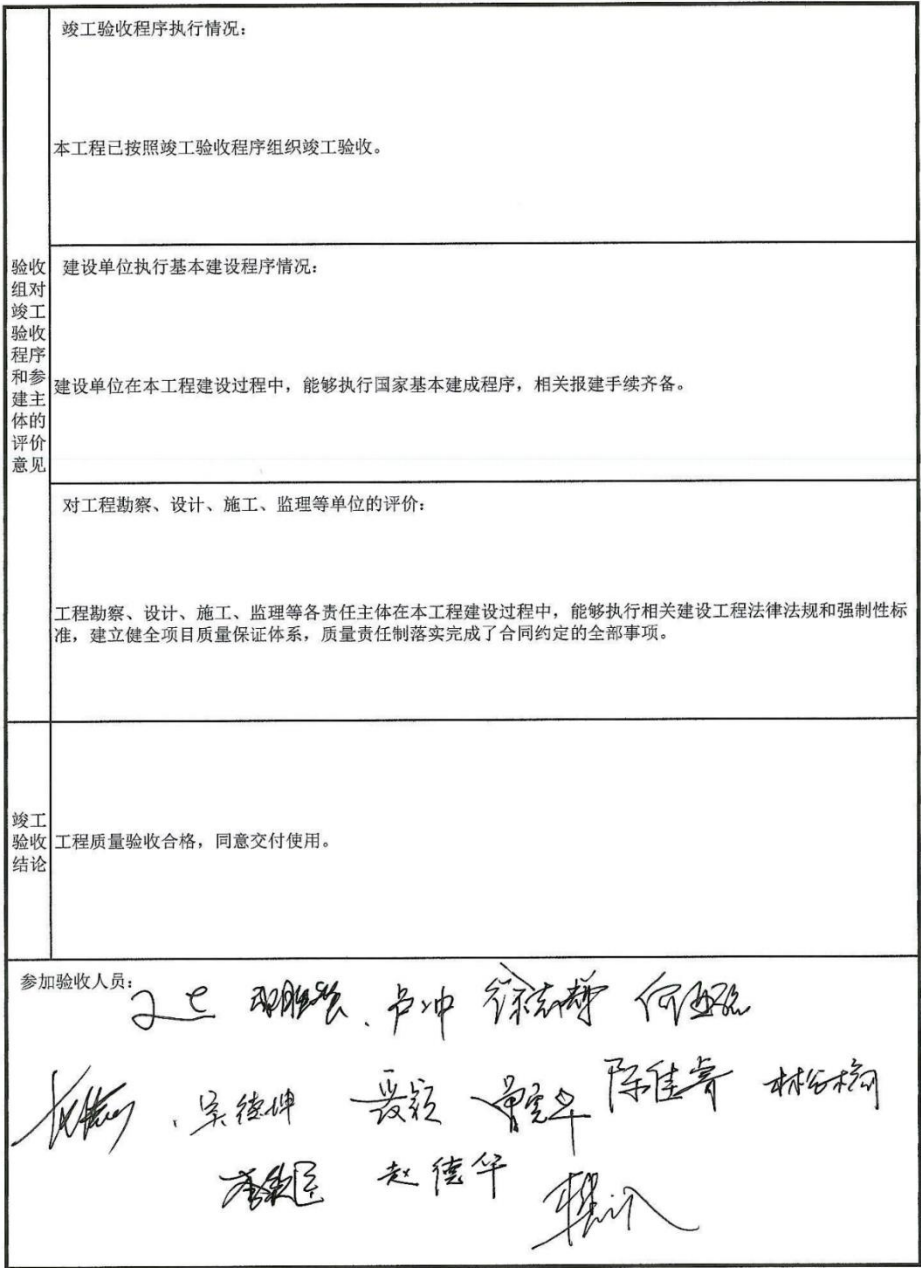 竣工验收程序执行情况：
本工程已按照竣工验收程序组织竣工验收。
验收
组对
竣工
验收
程序
和参
建主
体的
评价
意见
建设单位执行基本建设程序情况：
建设单位在本工程建设过程中，能够执行国家基本建成程序，相关报建手续齐备。
对工程勘察、设计、施工、监理等单位的评价：
工程勘察、设计、施工、监理等各责任主体在本工程建设过程中，能够执行相关建设工程法律法规和强制性标
准，建立健全项目质量保证体系，质量责任制落实完成了合同约定的全部事项。
竣工
验收
结论
工程质量验收合格，同意交付使用。
参加验收人员：
卢冲
吴德坤 聂颖 陈佳睿
赵德华